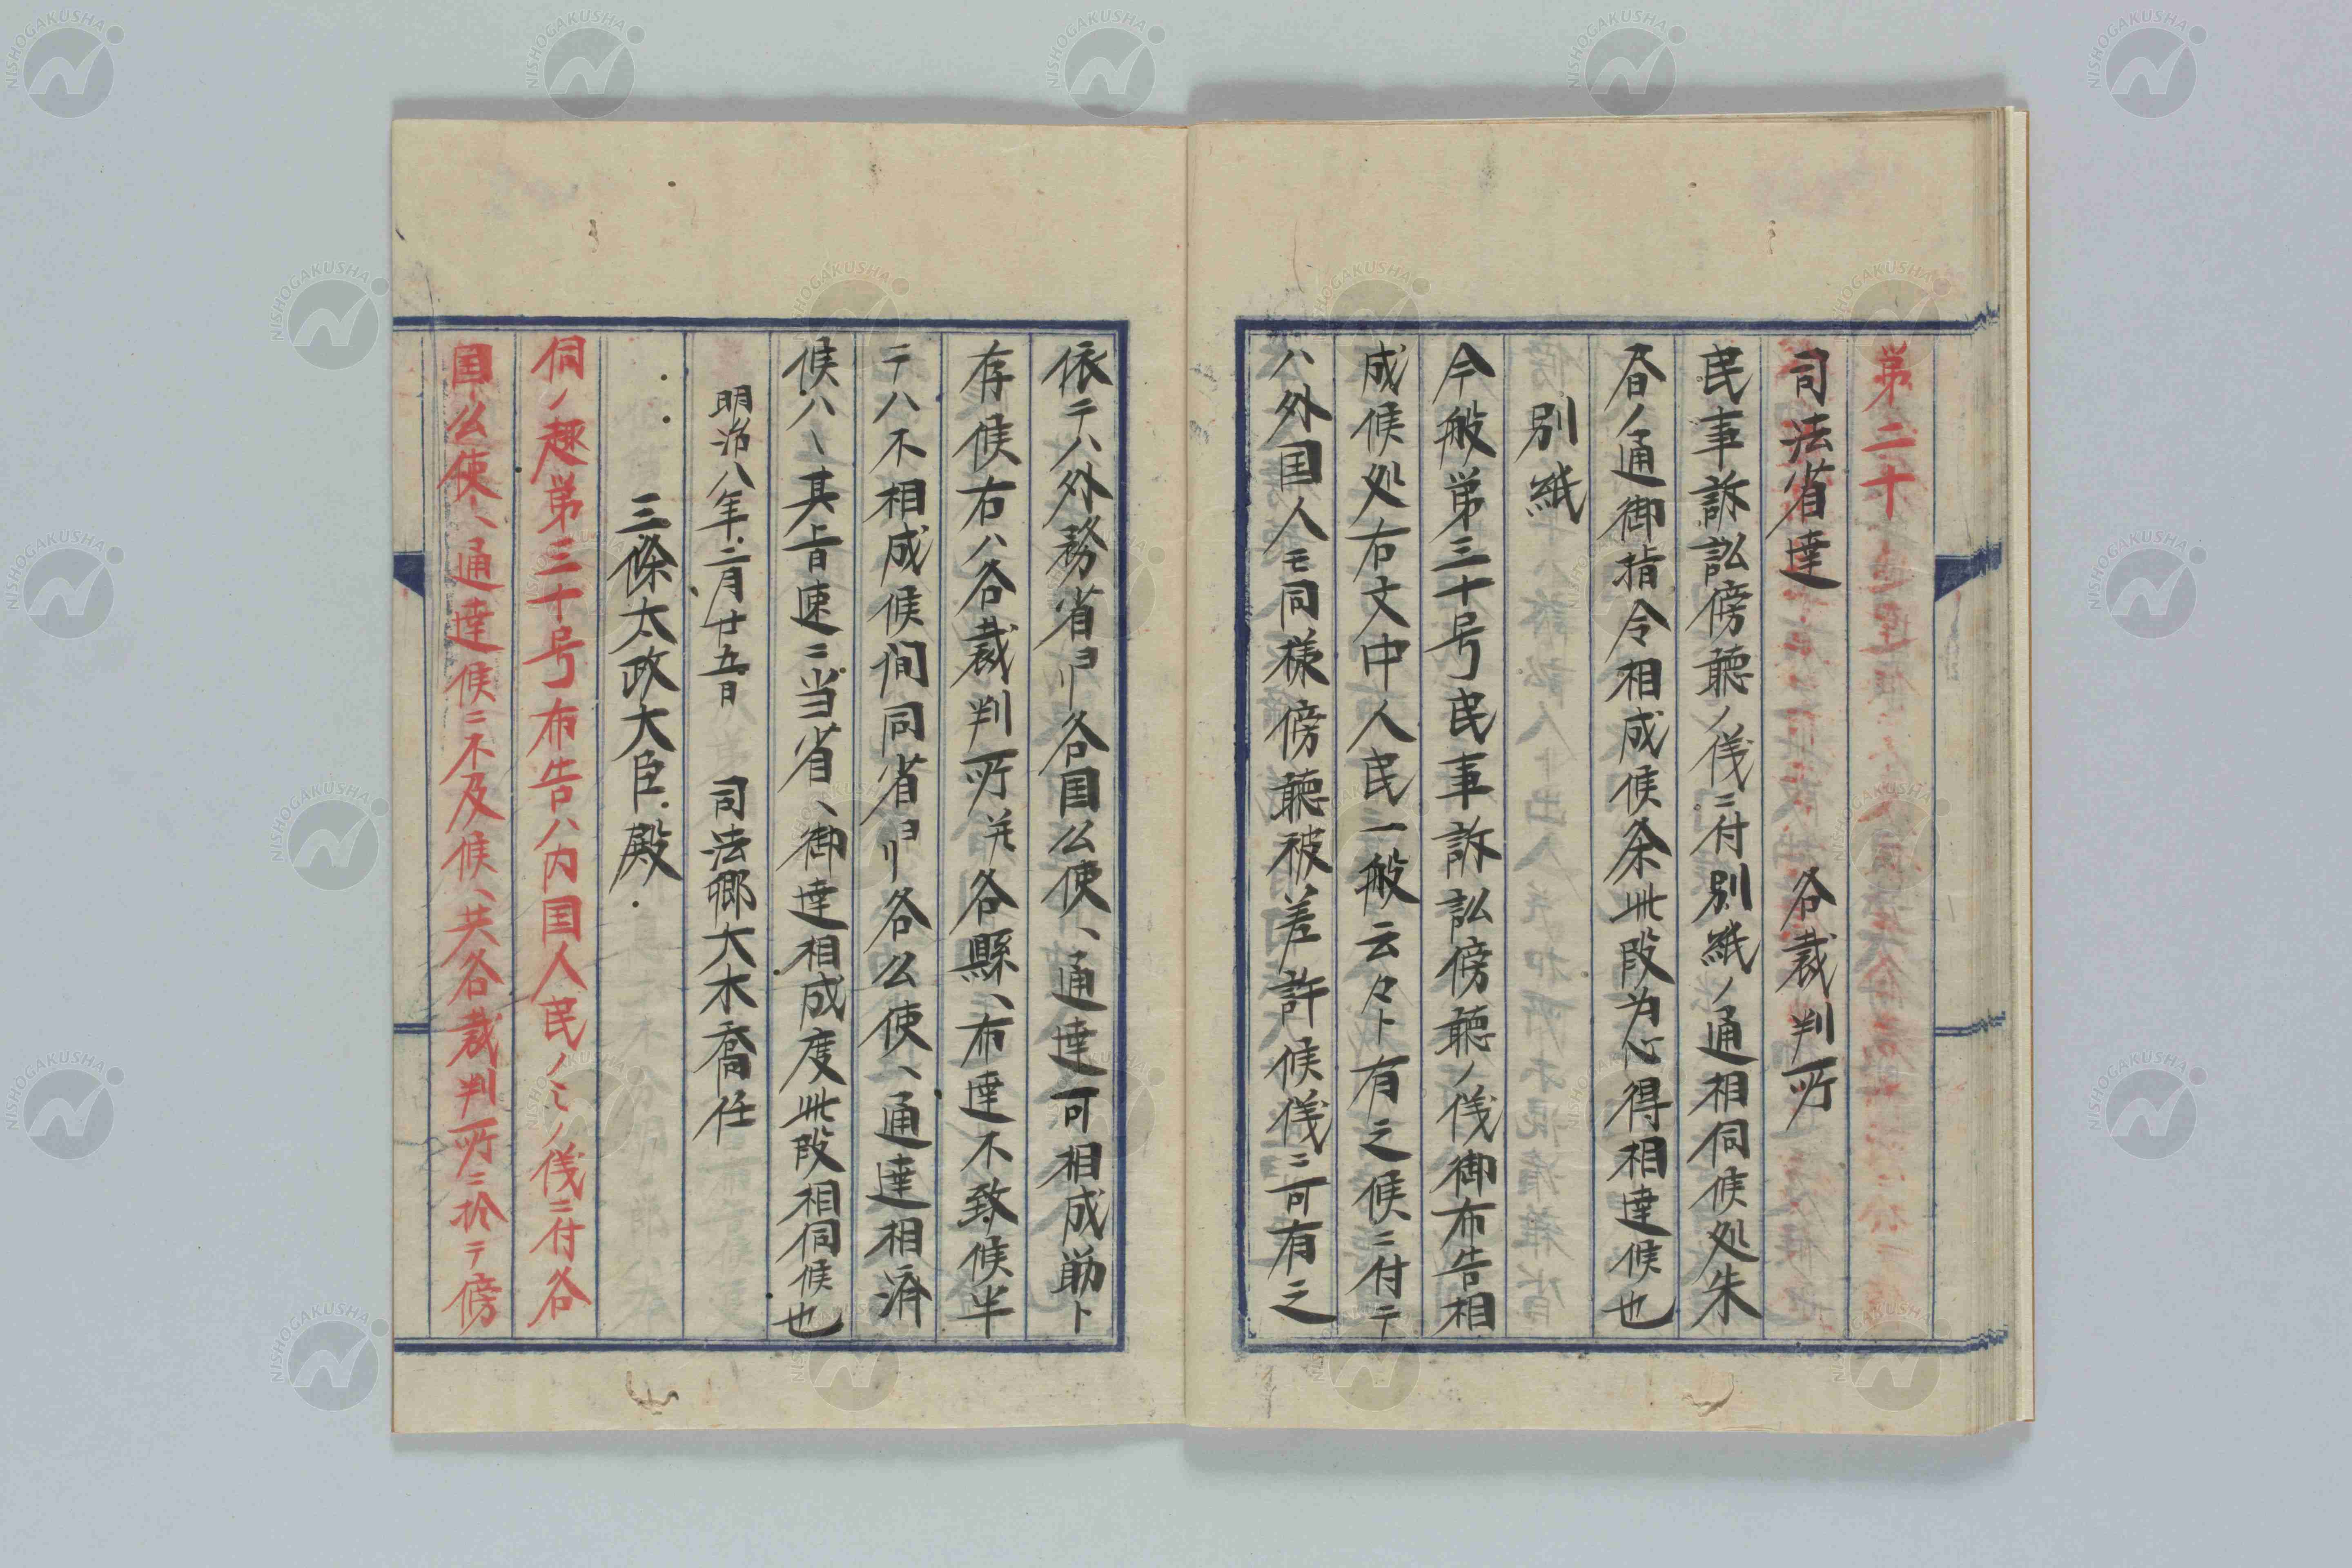 第二十
司法省達　各裁判所
民事訴訟傍聴ノ儀ニ付別紙ノ通相伺候処朱
書ノ通御指令相成候条此段為心得相達候也
別紙
今般第三十号民事訴訟傍聴ノ儀御布告相
成候処右文中人民一般云々ト有之候ニ付テ
ハ外国人モ同様傍聴被差許候儀ニ可有之
依テハ外務省ヨリ各国公使ヘ通達可相成筋ト
存候右ハ各裁判所并各縣ヘ布達不致候半
テハ不相成候間同省ヨリ各公使ヘ通達相済
候ハヽ其旨速ニ当省ヘ御達相成度此段相伺候也
明治八年二月廿五日　司法卿大木喬任
三條太政大臣殿
伺ノ趣第三十号布告ハ内国人民ノミノ儀ニ付各
国公使ヘ通達候ニ不及候ヘ共各裁判所ニ於テ傍
NISHOGAKUSHA